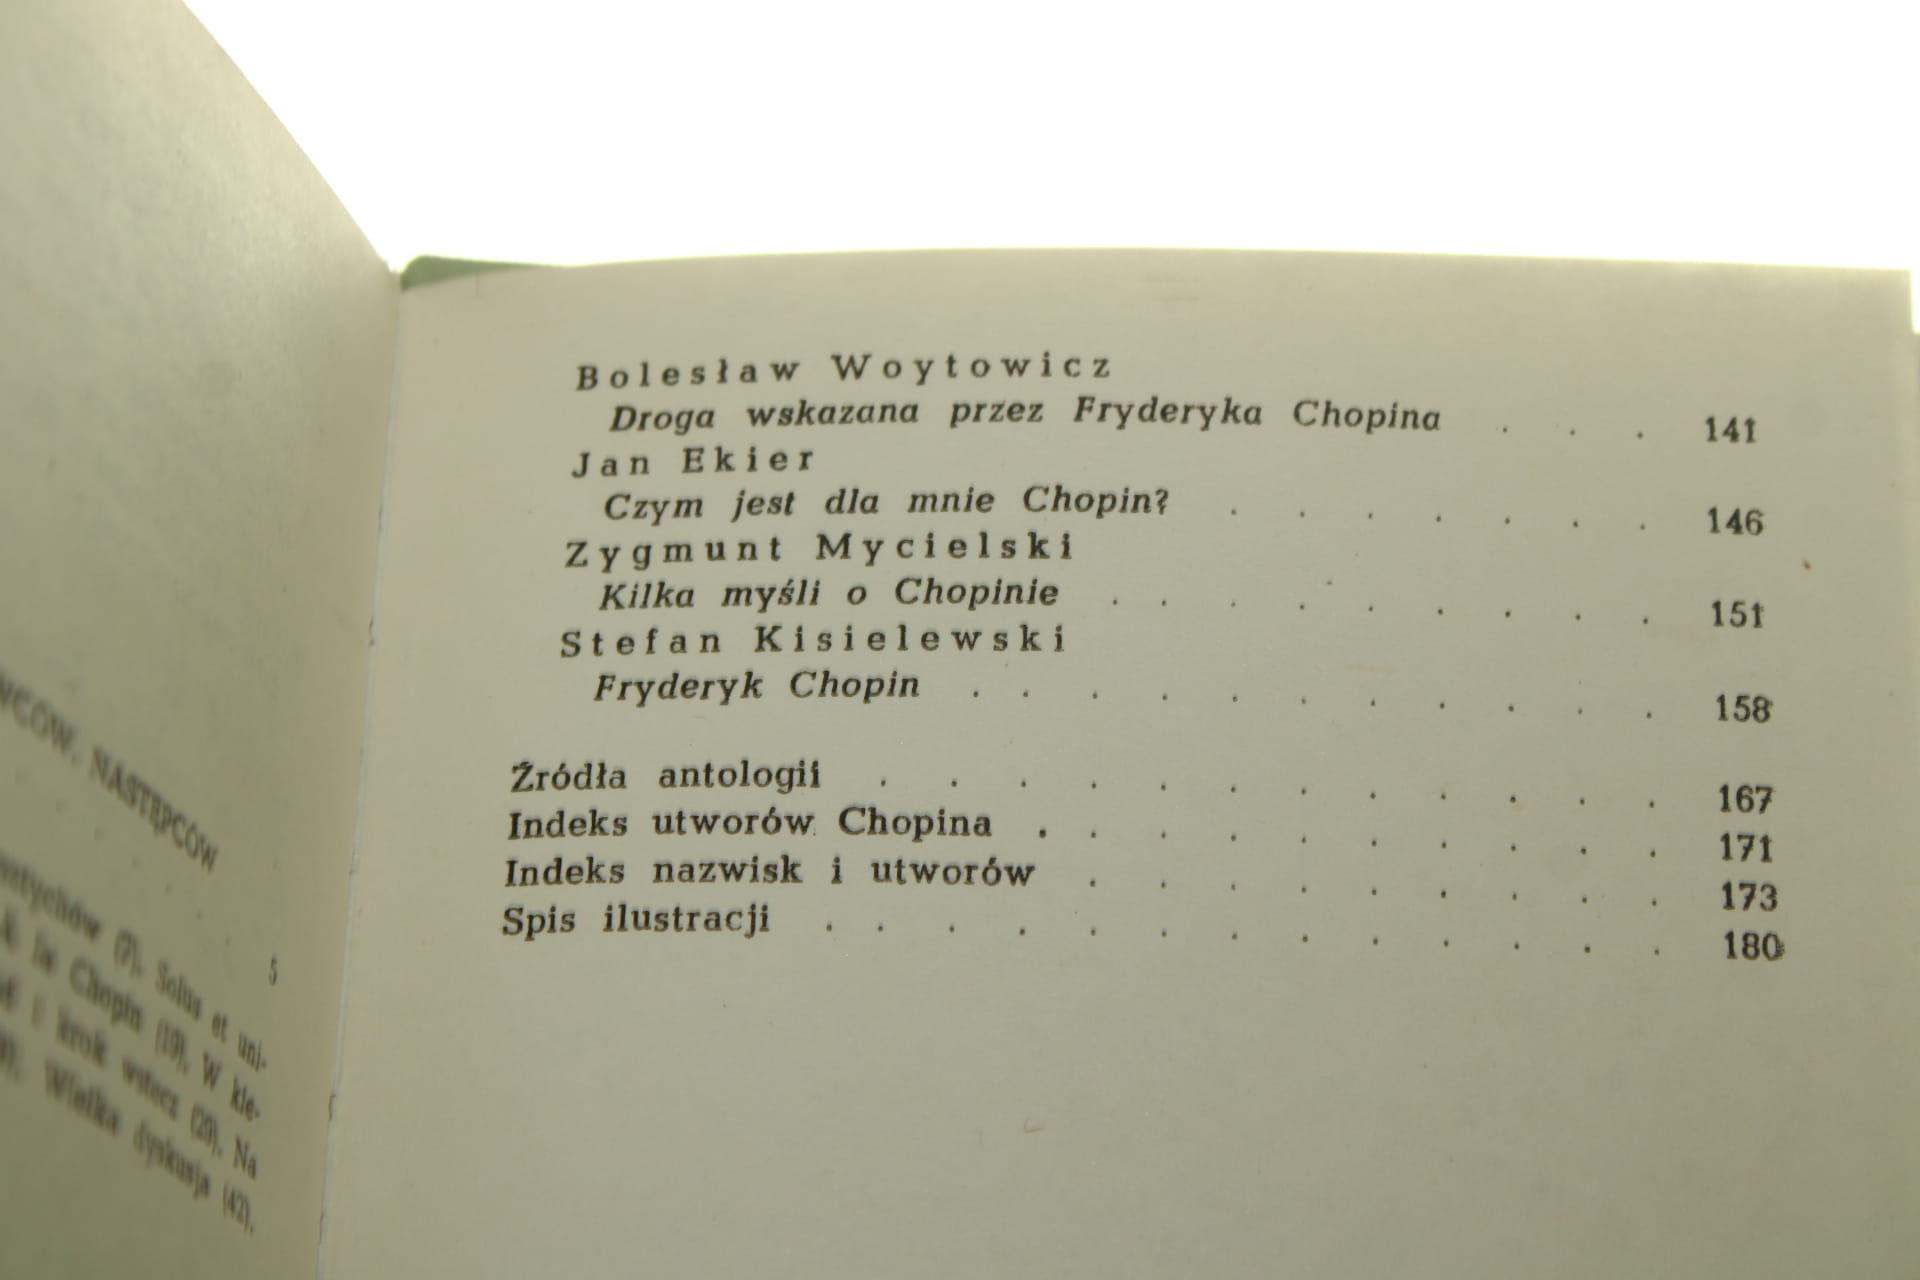 NASTĘPCÓW
5
(7). Solus et uni-
la Chopin (19). W kie-
i krok wstecz (29). Na
Wielka dyskusja (42).
Bolesław Woytowicz
Droga wskazana przez Fryderyka Chopina . . . 141
Jan Ekier
Czym jest dla mnie Chopin? . . . . . . . 146
Zygmunt Mycielski
Kilka myśli o Chopinie . . . . . . . . . 151
Stefan Kisielewski
Fryderyk Chopin . . . . . . . . . . . 158
Źródła antologii . . . . . . . . . . . . 167
Indeks utworów Chopina . . . . . . . . . . 171
Indeks nazwisk i utworów . . . . . . . . . 173
Spis ilustracji . . . . . . . . . . . . . 180